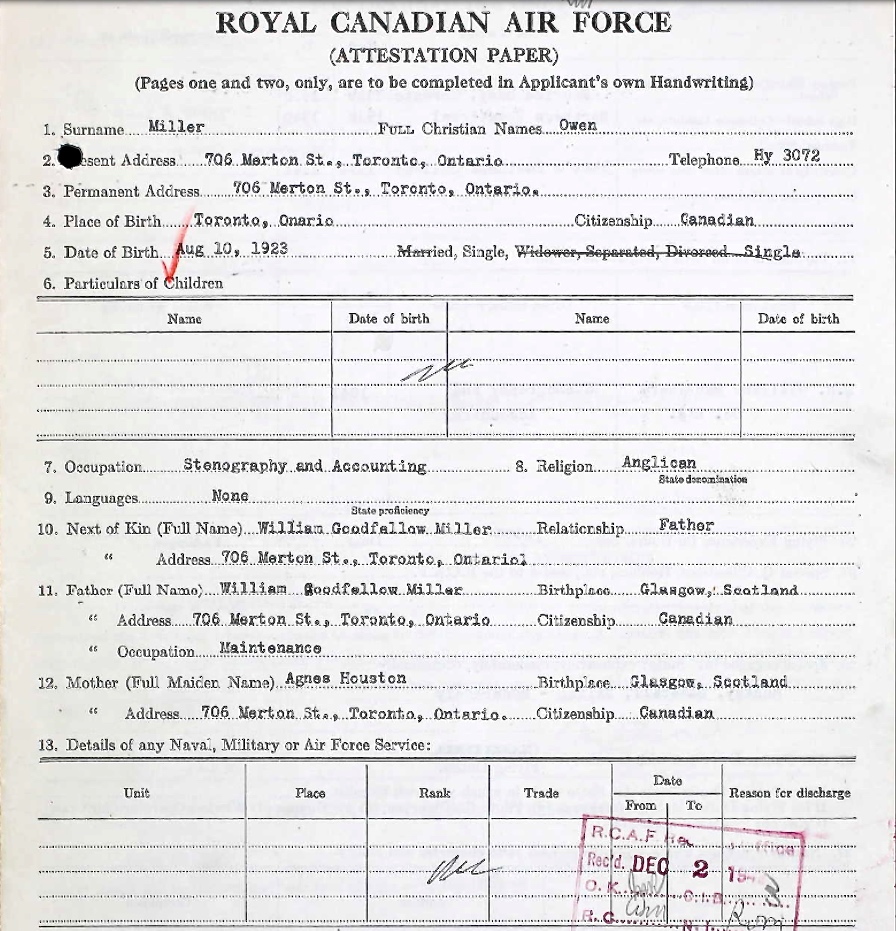 ROYAL CANADIAN AIR FORCE
(ATTESTATION PAPER)
(Pages one and two, only, are to be completed in Applicant's own Handwriting)
1. Surname Miller FULL Christian Names Owen
2. esent Address 706 Merton St., Toronto, Ontario Telephone Hy 3072
3. Permanent Address 706 Merton St., Toronto, Ontario.
4. Place of Birth Toronto, Onario Citizenship Canadian
5. Date of Birth Aug 10, 1923 Married, Single, Widower, Separated, Divorced Single
6. Particulars of Children
Name Date of birth Name Date of birth
7. Occupation Stenography and Accounting 8. Religion Anglican
State denomination
9. Languages None
State proficiency
10. Next of Kin (Full Name) William Goodfellow Miller Relationship Father
" Address 706 Merton St., Toronto, Ontario
11. Father (Full Name) William Goodfellow Miller Birthplace Glasgow, Scotland
" Address 706 Merton St., Toronto, Ontario Citizenship Canadian
" Occupation Maintenance
12. Mother (Full Maiden Name) Agnes Houston Birthplace Glasgow, Scotland
" Address 706 Merton St., Toronto, Ontario. Citizenship Canadian
13. Details of any Naval, Military or Air Force Service:
Unit Place Rank Trade Date Reason for discharge
From To
R.C.A.F
Rec'd. DEC 2
O. K.
R. C.